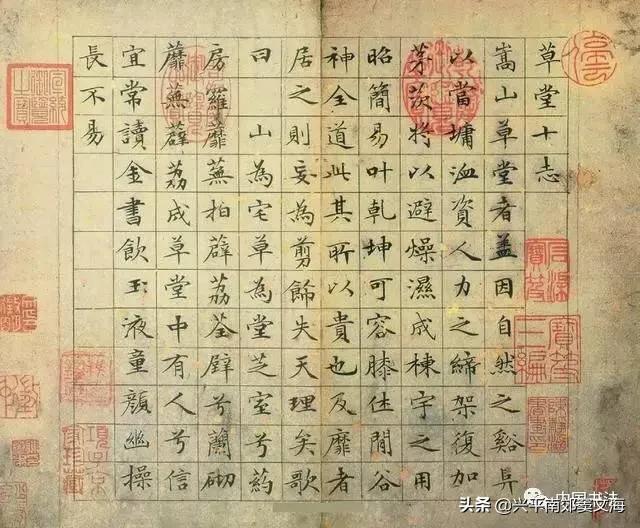 草堂十志
嵩山草堂者盖因自然之谿阜
以當墉洫資人力之締架復加
茅茨將以避燥濕成棟宇之用
昭簡易叶乾坤可容膝休閒谷
神全道此其所以貴也及靡者
居之則妄為剪飾失天理矣歌
曰 山為宅草為堂芝室兮葯
房羅蘼蕪拍薜荔荃壁兮蘭砌
蘼蕪薜荔成草堂中有人兮信
宜常讀金書飲玉液童顏幽操
長不易
項子京家珍藏
中国书法
头条 @兴平南郊姜文海